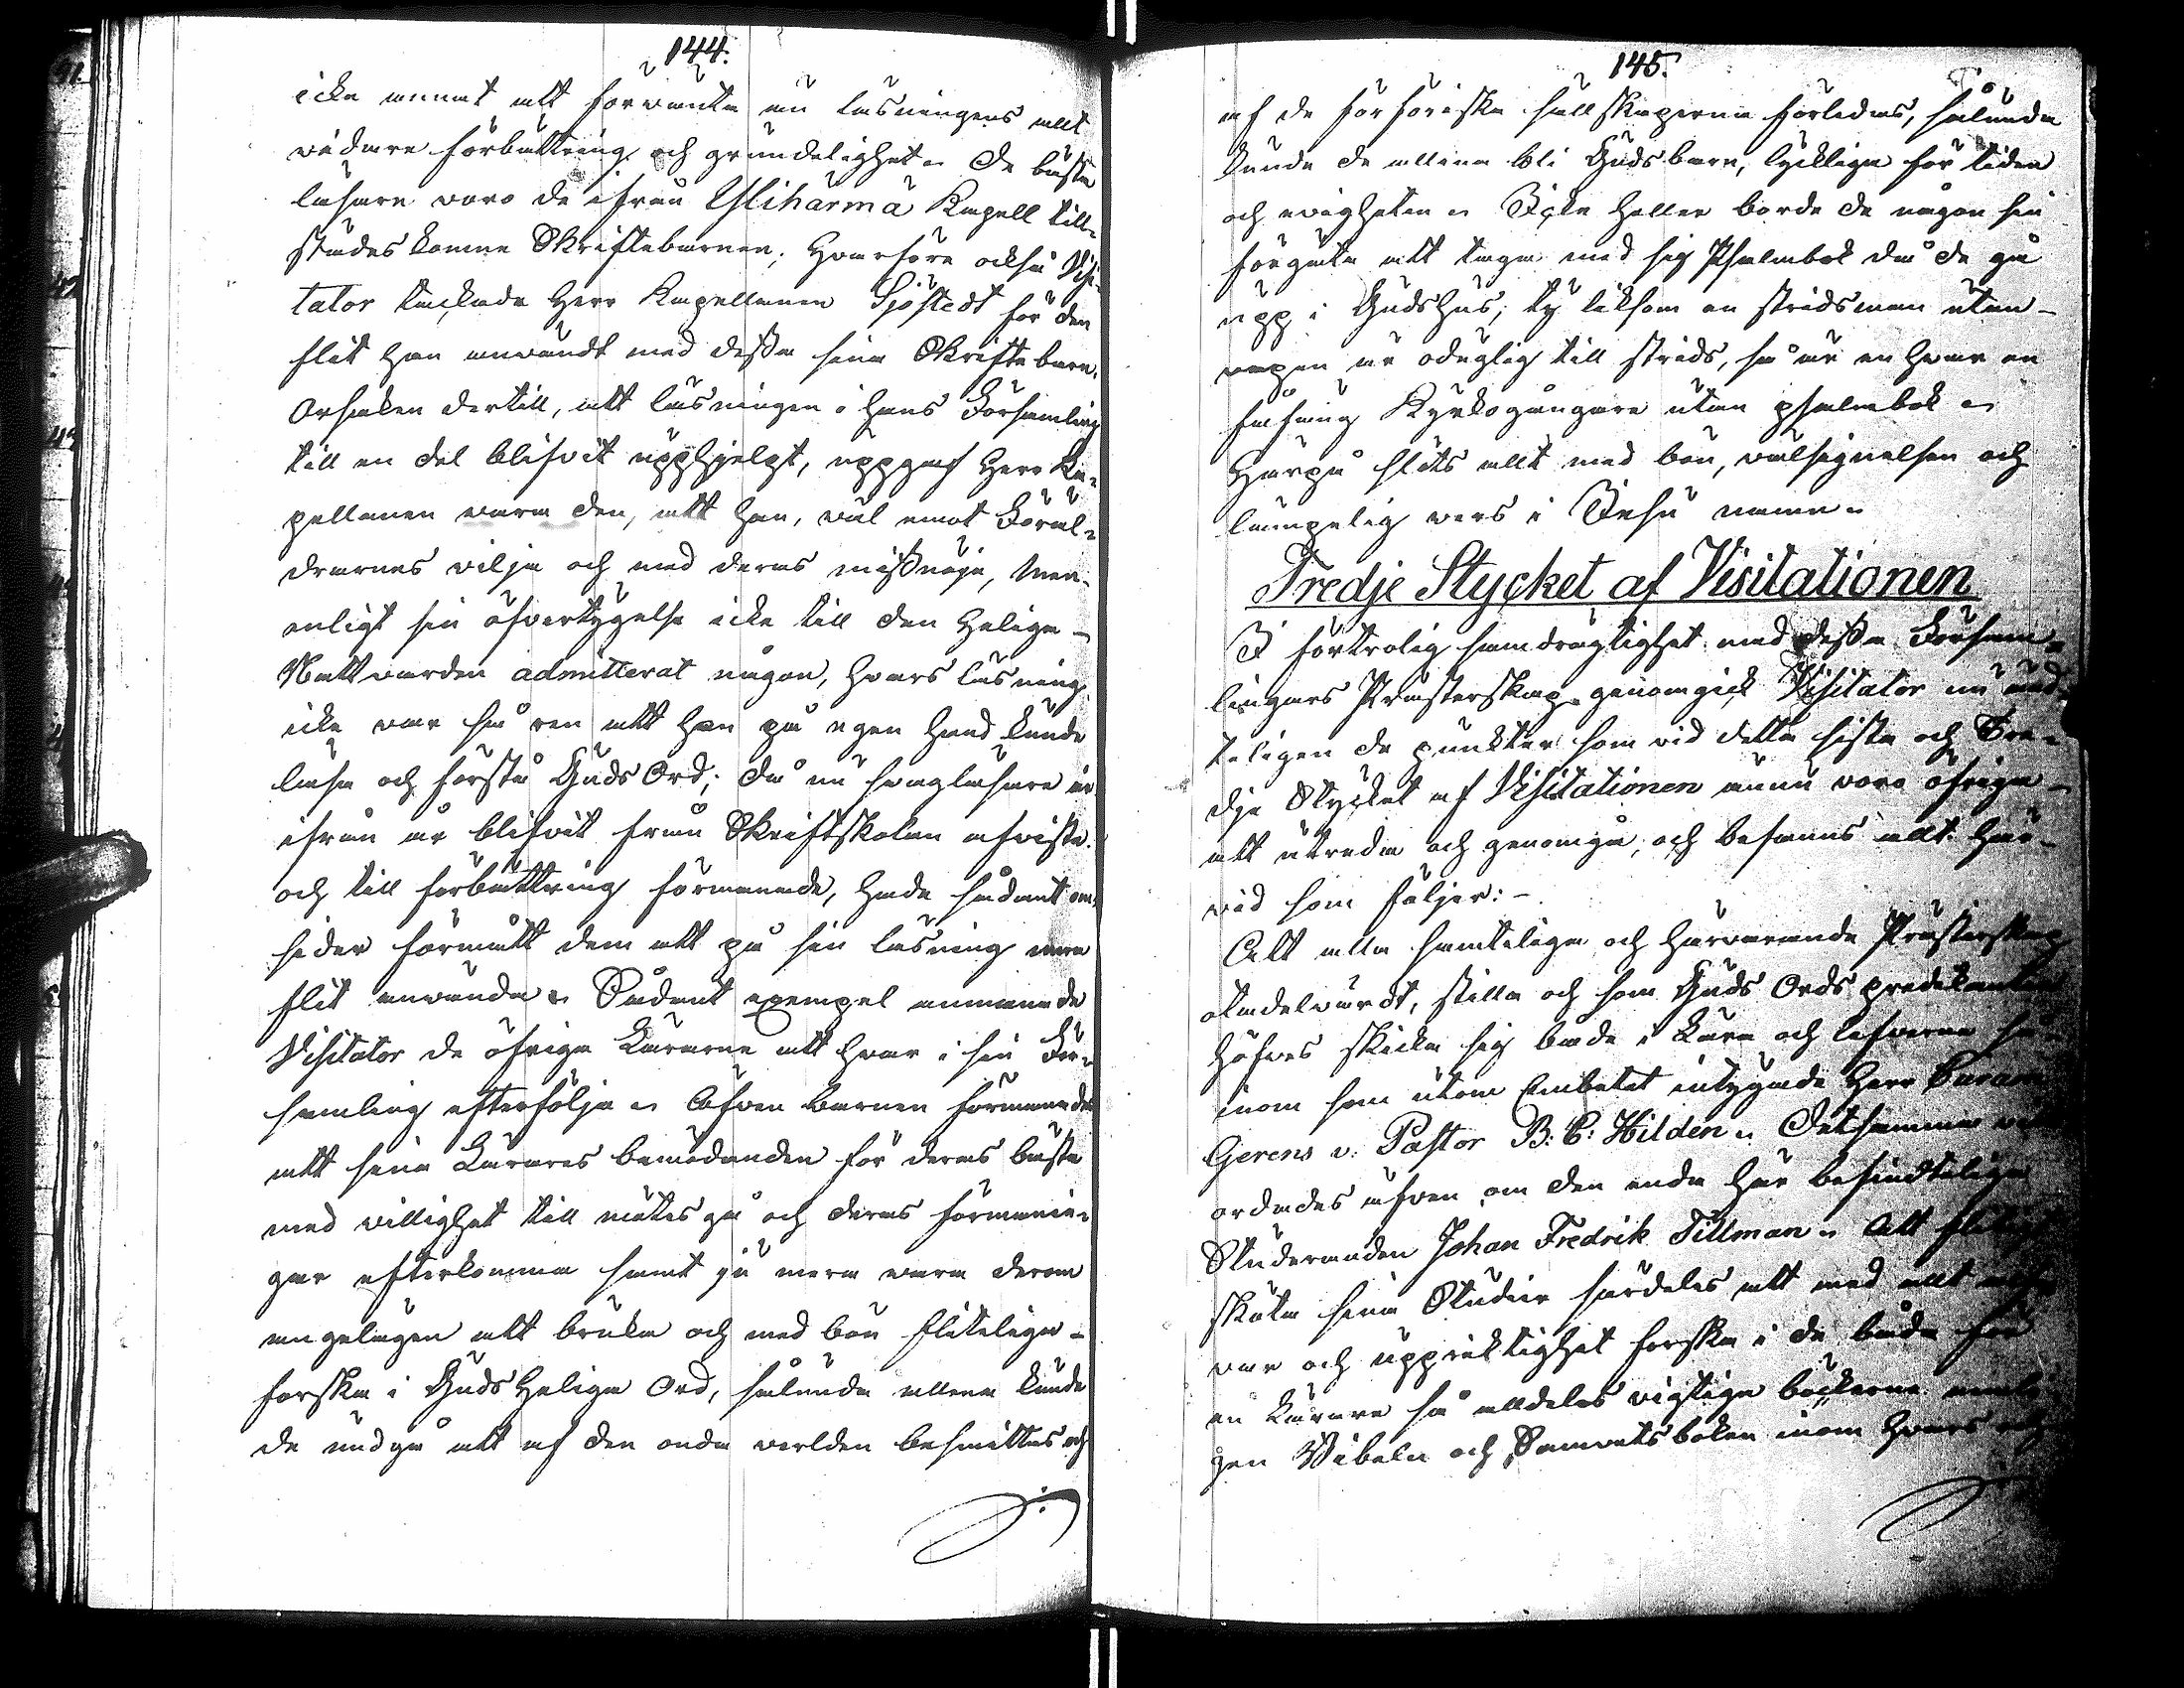 144.
icke annat att förvänta än läsningens allt
vidare förbättring och grundelighet. De bästa
läsare voro de ifrån Ylihärmä Kapell till-
städes komne Skriftebarnen; Hvarföre också Visi-
tator tackade Herr Kapellanen Sjöstedt för den
flit han användt med dessa sina Skriftebarn.
Orsaken dertill, att läsningen i hans Församling
till en del blifvit upphjelpt, uppgaf Herr Ka-
pellanen vara den, att han, väl emot Föräl-
drarnes vilja och med deras missnöje, men
enligt sin öfvertygelse icke till den Heliga
Nattvarden admitterat någon, hvars läsning
icke var så ren att han på egen hand kunde
läsa och förstå Guds Ord; då nu svagläsare år
ifrån år blifvit från Skriftskolan afviste
och till förbättring förmanade, hade sådant om-
sider förmått dem att på sin läsning mera
flit använda. Sådant exempel anmanade
Visitator de öfriga Lärarne att hvar i sin För-
samling efterfölja. Äfven barnen förmanades
att sina Lärares bemödanden för deras bästa
med villighet till mötes gå och deras förmanin-
gar efterkomma samt ju mera vara derom
angelägen att bruka och med bön fliteliga
forska i Guds Heliga Ord, sålunda allena kunde
de undgå att af den onda verlden besmittas och
145.
af de förföriska sällskaperna förledas, sålunda
kunde de allena bli Guds barn, lyckliga för tiden
och evigheten. Icke heller borde de någon sin
förgäta att taga med sig Psalmbok då de gå
upp i Guds hus; ty liksom en stridsman utan
vapen är oduglig till strids, så är en hvar en
fåfäng Kyrkogångare utan psalmbok.
Härpå slöts allt med bön, välsignelsen och
lämpelig vers i Jesu namn.
Tredje Stycket af Visitationen
I förtrolig samdrägtighet med dessa Försam-
lingars Prästerskap genomgick Visitator nu änd-
teligen de punkter som vid detta sista och Tre-
dje Stycket af Visitationen ännu voro öfriga
att utreda och genomgå, och befanns allt här-
vid som följer:
Att alla samteliga och härvarande Prästerskap
otadelvärdt, stilla och som Guds Ords predikanter
höfves skicka sig både i Lära och lefverne så
inom som utom Embetet intygade Herr Curam
Gerens v. Pastor B: C: Hilden. Detsamma vits
ordades äfven om den enda här befindtelige
Studeranden Johan Fredrik Tillman. Att flitigt
sköta sina Studier särdeles att med allt
var och uppriktighet forska i de både för
en Lärare så alldeles vigtiga böckerne neml
gen Bibeln och Samvetsboken inom hvars